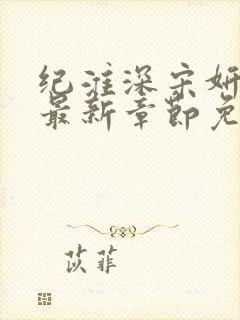 纪淮深宋妍
最新章节免
苡菲